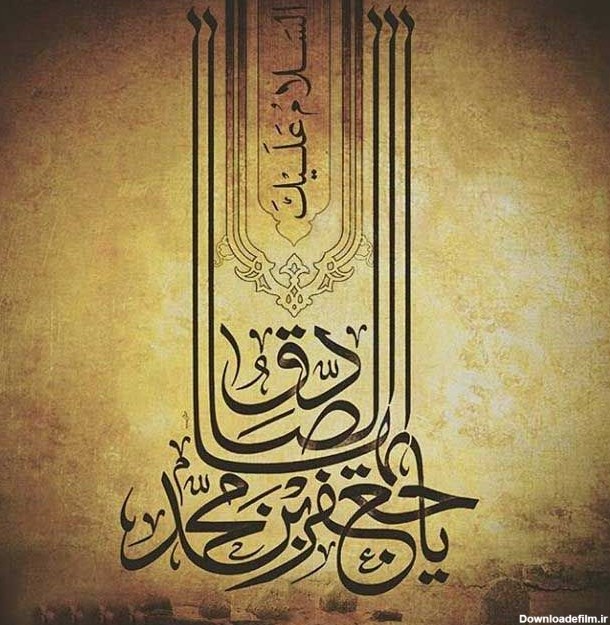 السَلامُ عَلَيكَ
يا جعفر بن محمد
ايها الصادق
Downloadefilm.ir